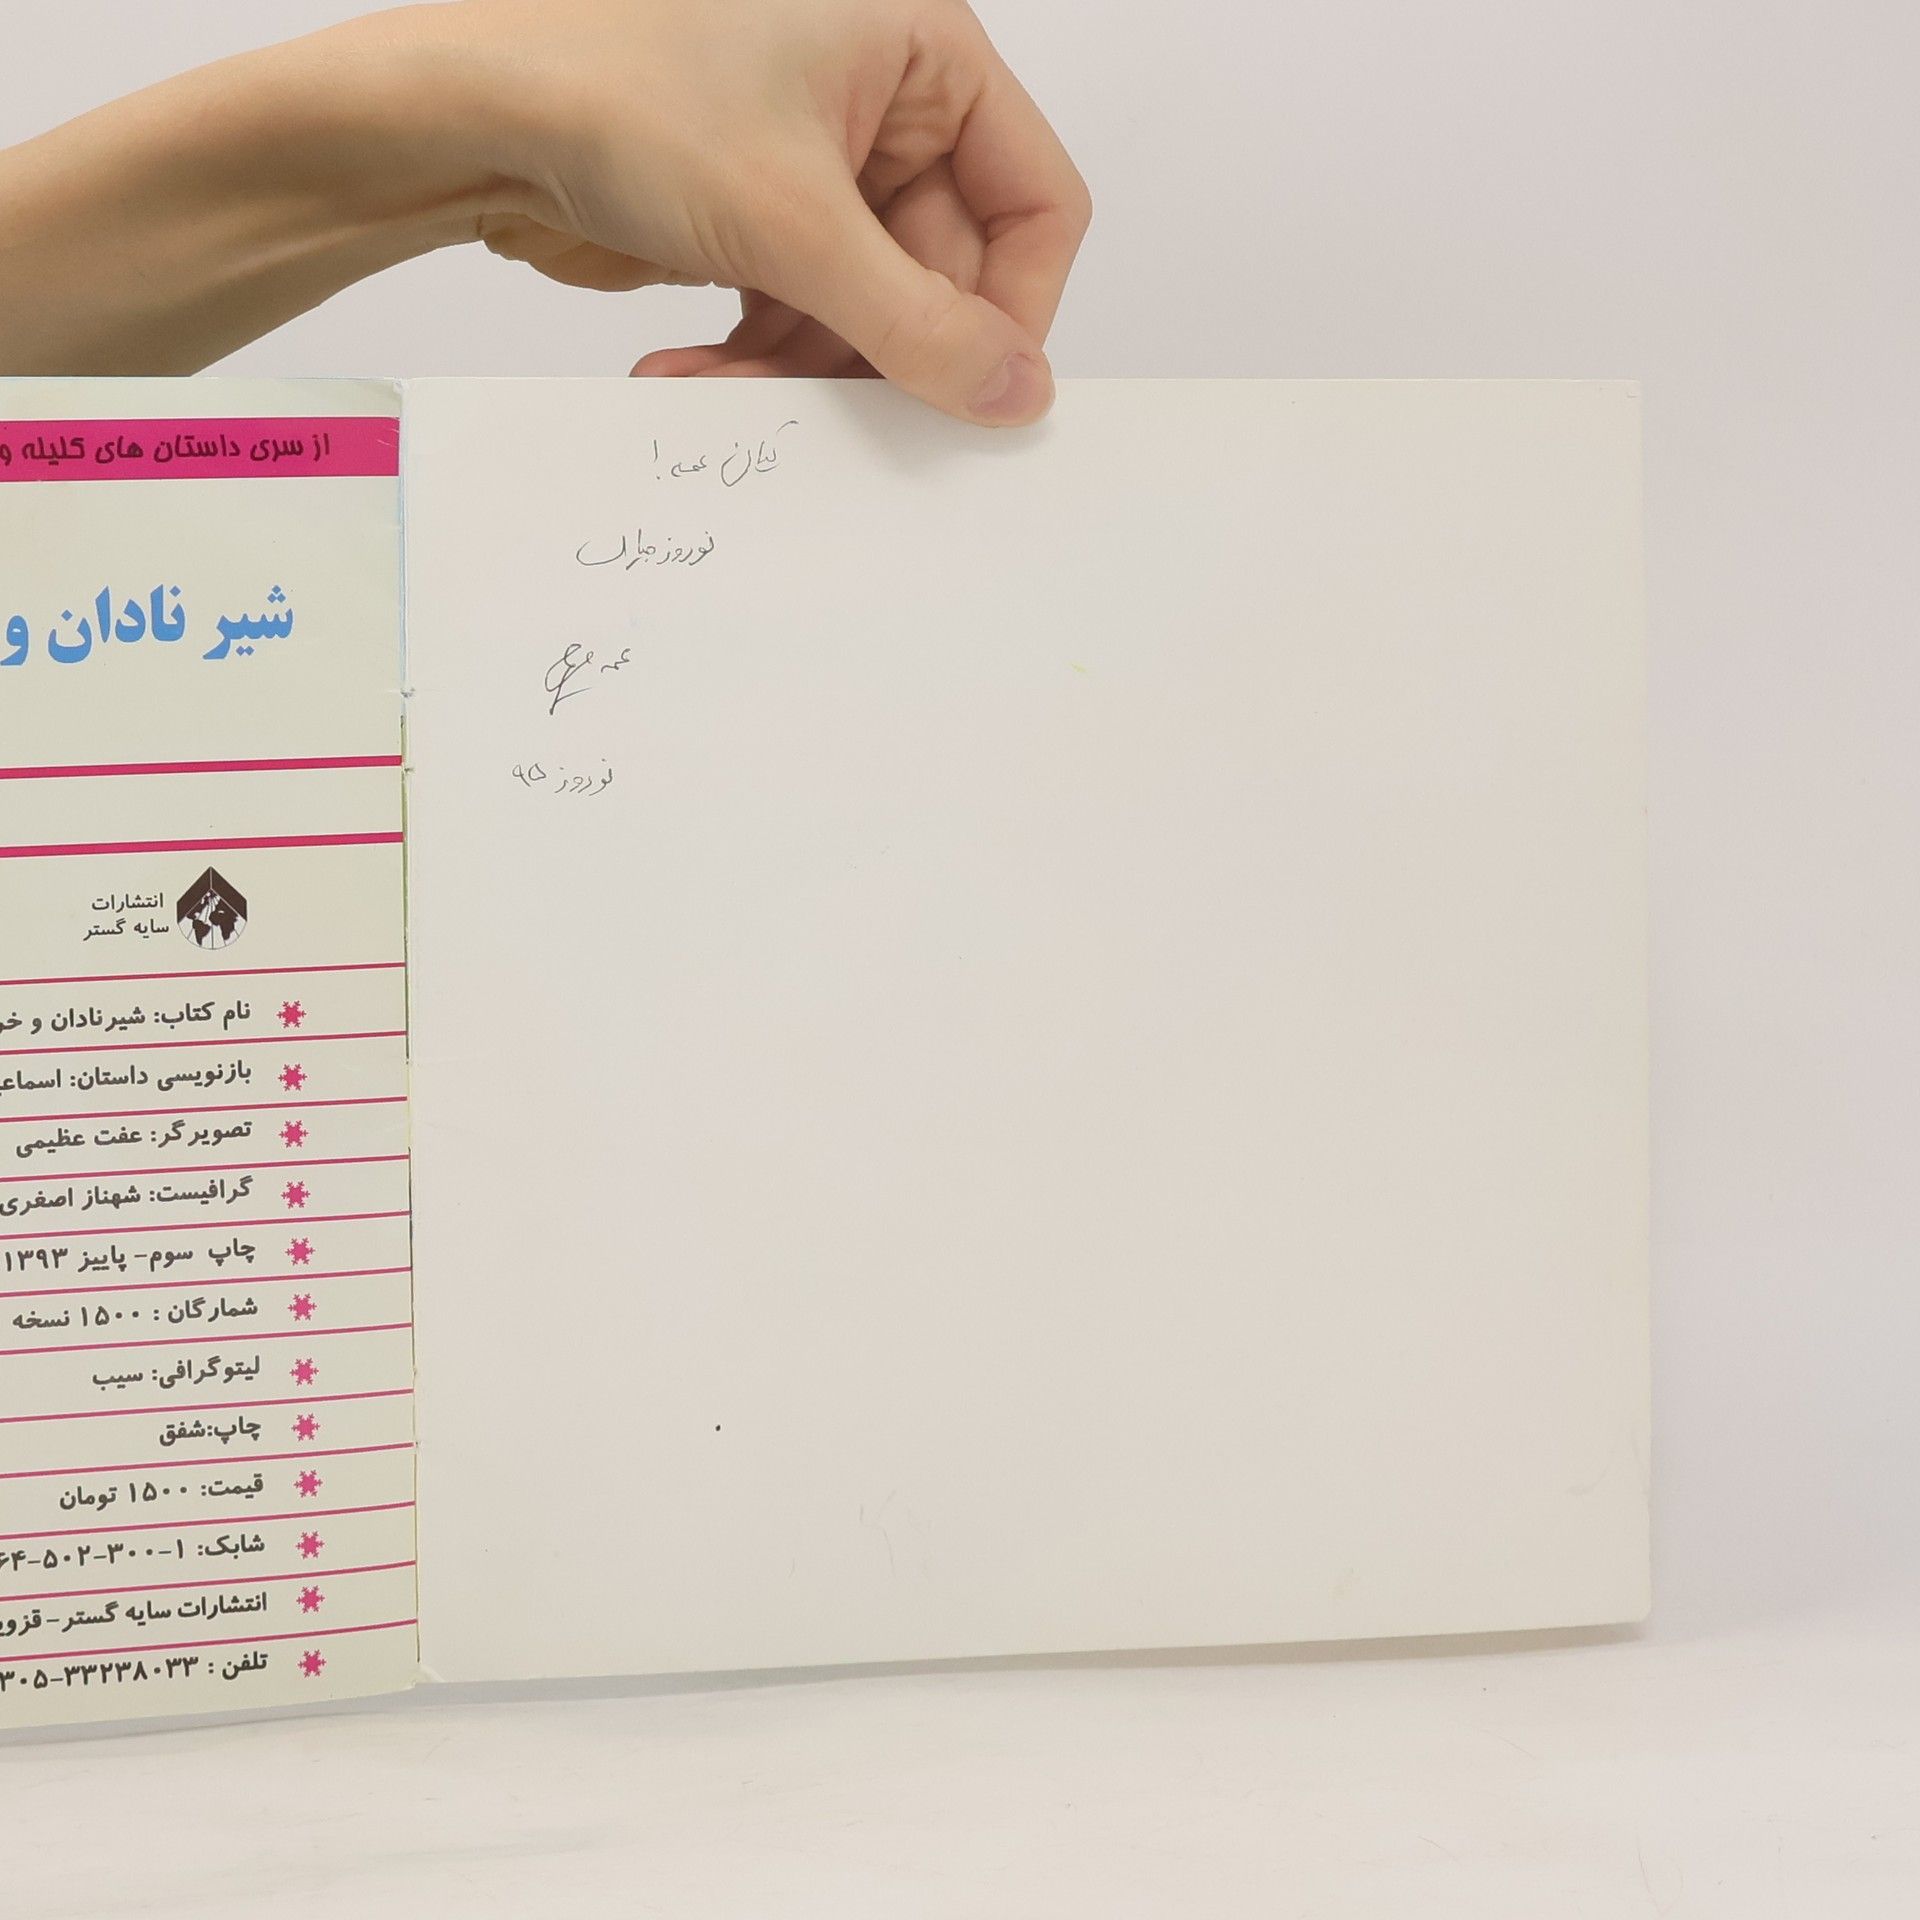 از سری داستان های کلیله و
شیر نادان و
انتشارات
سایه گستر
نام کتاب: شیرنادان و خر
بازنویسی داستان: اسماعی
تصویرگر: عفت عظیمی
گرافیست: شهناز اصغری
چاپ سوم- پاییز ۱۳۹۳
شمارگان : ۱۵۰۰ نسخه
لیتوگرافی: سیب
چاپ:شفق
قیمت: ۱۵۰۰ تومان
شابک: ۱-۳۰۰-۵۰۲-۶۴
انتشارات سایه گستر-قزوی
تلفن : ۳۳۲۳۸۰۳۳-۳۰۵
کیان عمه !
نوروز مبارک
عمه
نوروز ۹۵